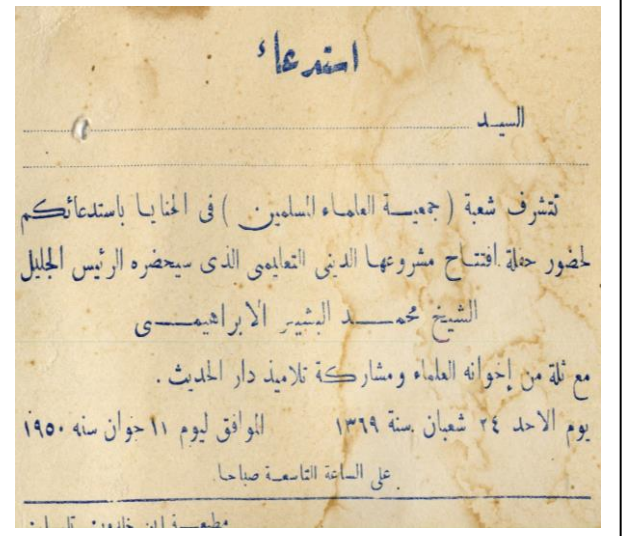 استدعاء
السيد
تتشرف شعبة ( جمعية العلماء المسلمين ) فى الحنايا باستدعائكم
لحضور حفلة افتتاح مشروعها الدينى التعليمى الذى سيحضره الرئيس الجليل
الشيخ محمد البشير الابراهيمى
مع ثلة من إخوانه العلماء ومشاركة تلاميذ دار الحديث .
يوم الاحد ٢٤ شعبان سنة ١٣٦٩ الموافق ليوم ١١ جوان سنه ١٩٥٠
على الساعة التاسعة صباحا.
مطبعة ابن خلدون تلمسان